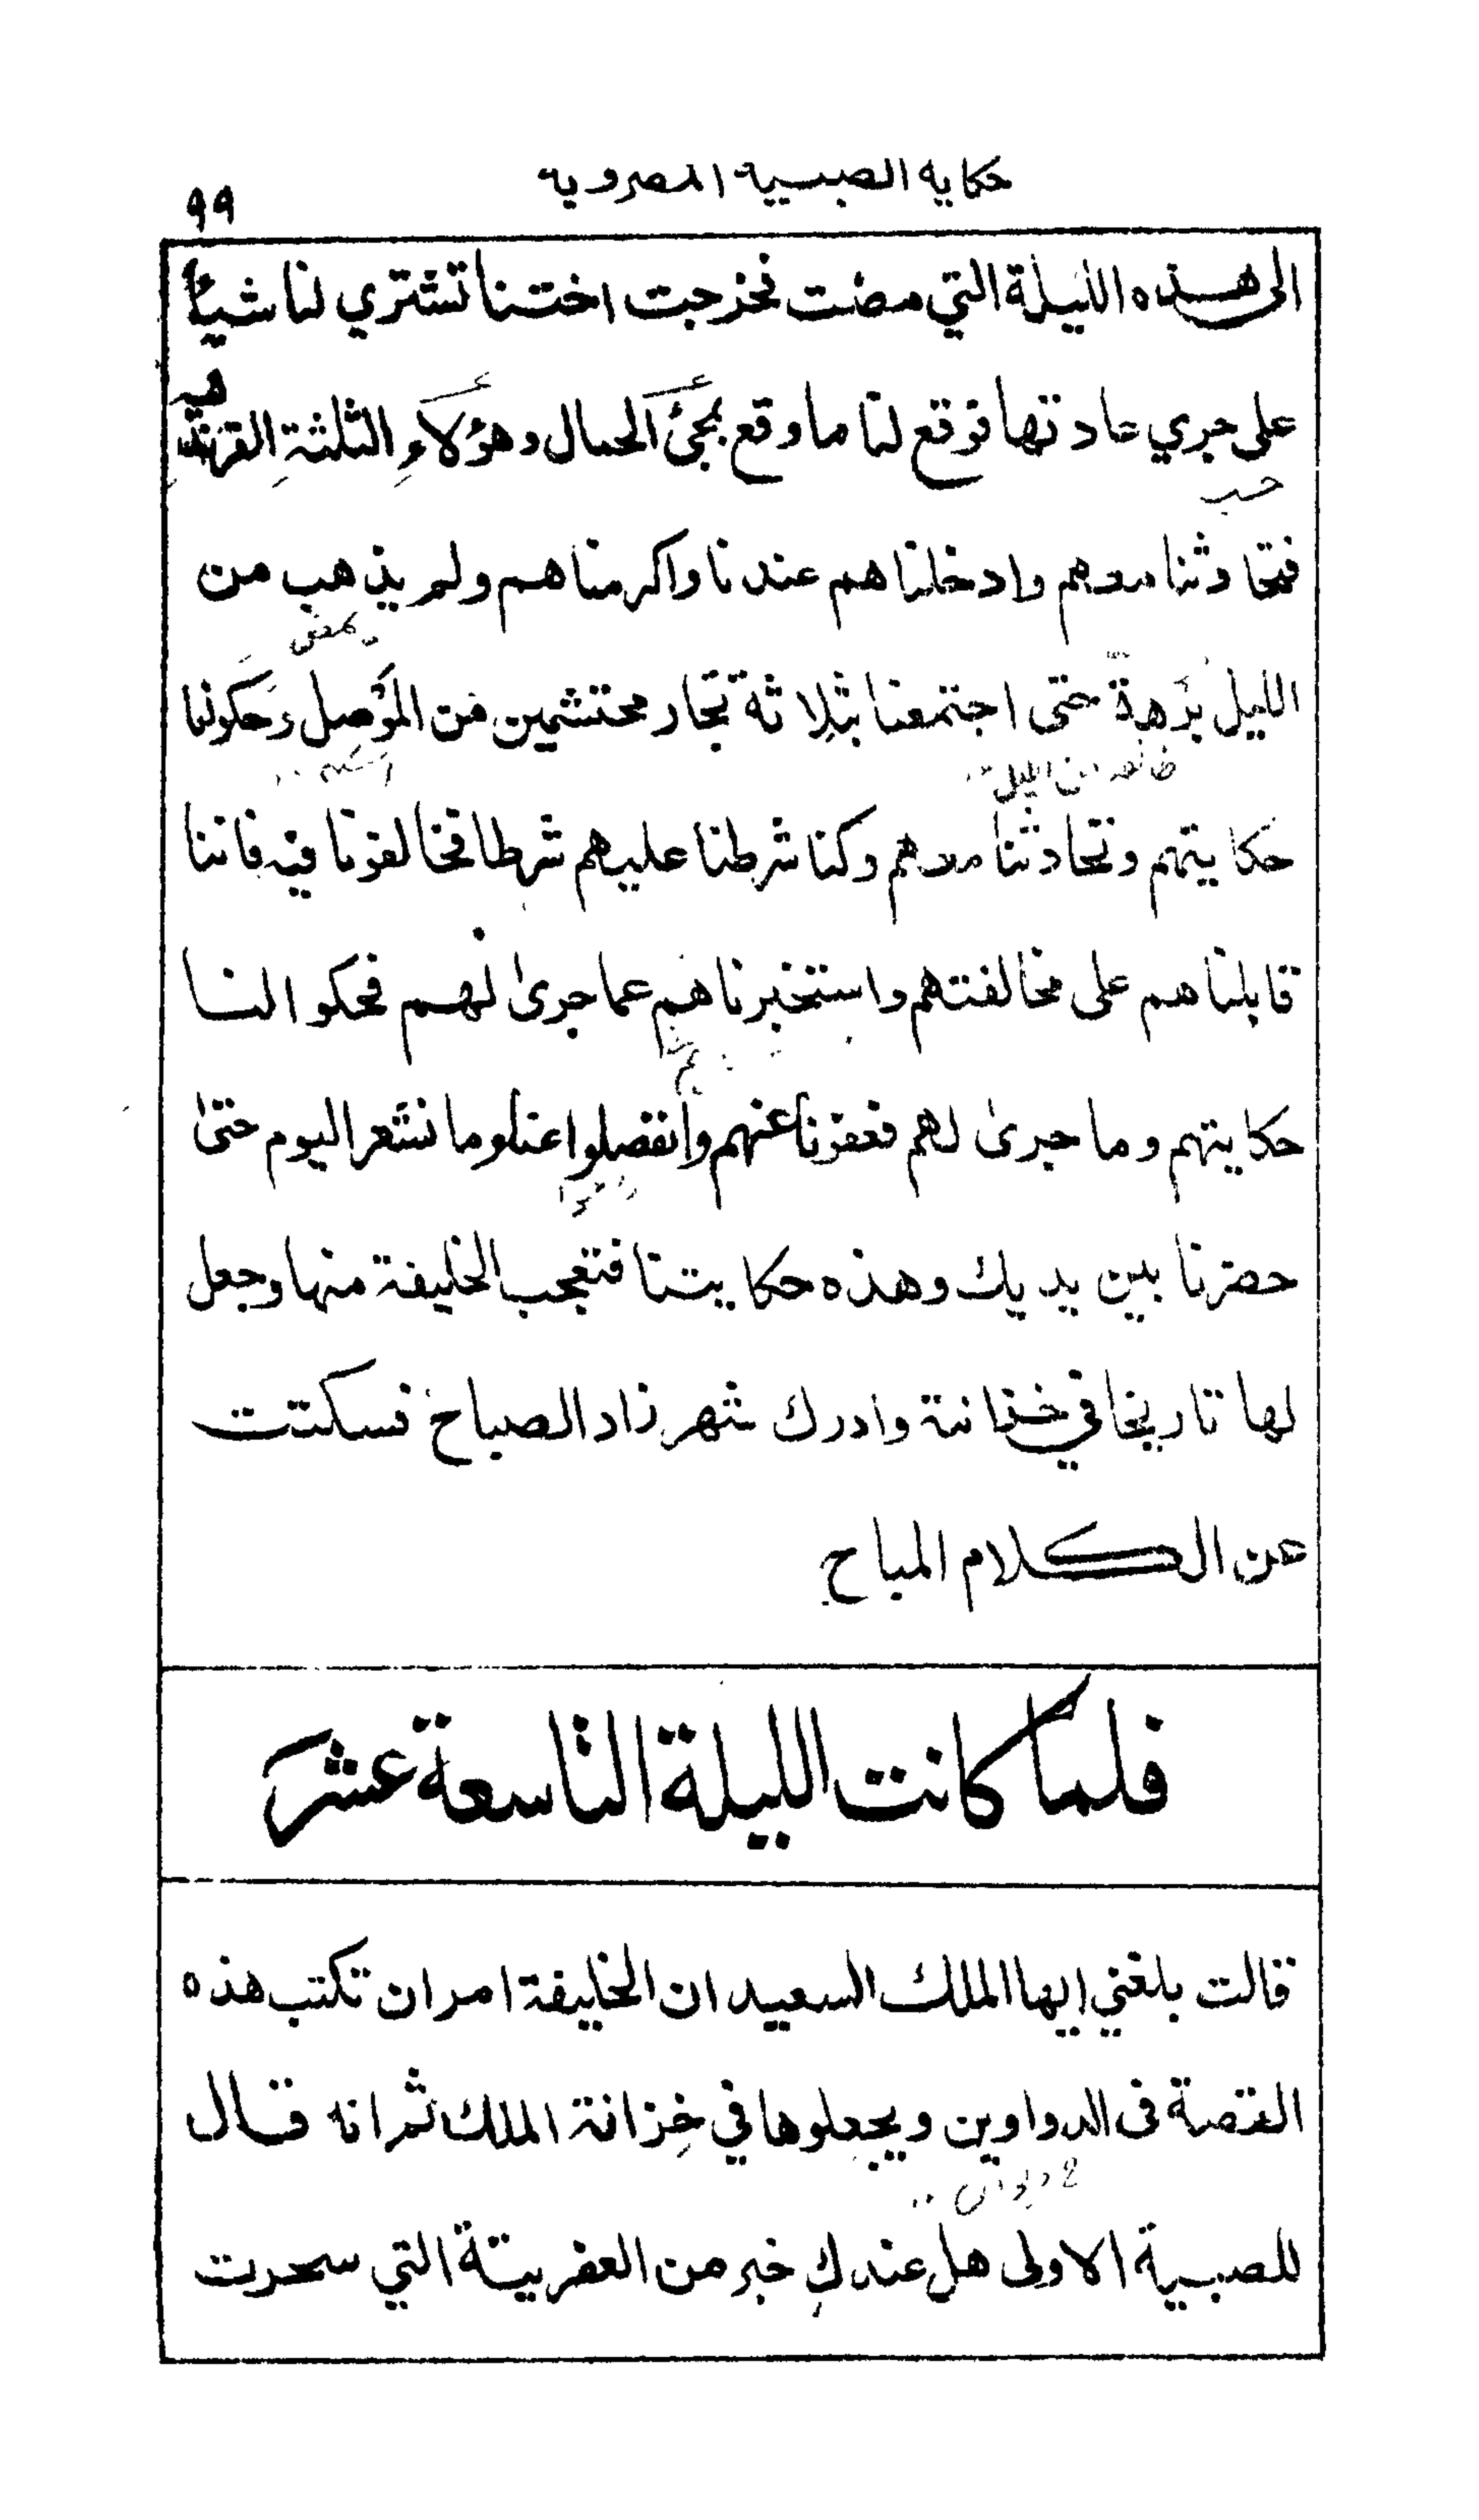 حكاية الصبية المضروبة
٩٩
الى هذه الليلة التي مضت فخرجت اختنا تشتري لنا شيئا
على جري عادتها فوقع لنا ما وقع بمجئ الحمال وهؤلاءِ الثلثةِ القرندلية
فتحادثنا معهم وادخلناهم عندنا واكرمناهم ولم يذهب من
الليل بُرْهةٌ حتى اجتمعنا بثلاثة تجار محتشمين من المَوْصِل وَحكَولنا
حكايتهم وتحادثنا معهم وكنا شرطنا عليهم شرطا فخالفونا فيه فاننا
قابلناهم على مخالفتهم واستخبرناهم عما جرىٰ لهم فحكوا لنا
حكايتهم وما جرىٰ لهم فعفونا عنهم وانفصلوا عنا وما نشعر اليوم حتىٰ
حضرنا بين يديك وهذه حكايتنا فتعجب الخليفة منها وجعل
لها تاريخا في خزانة وادرك شهرزاد الصباح فسكتت
عن الكلام المباح
فلما كانت الليلة التاسعة عشر
قالت بلغني ايها الملك السعيد ان الخليفة امر ان تكتب هذه
القصة فى الدواوين ويجعلوها في خِزانة الملك ثم انه قال
للصبية الاولى هل عندكِ خبر من العفريتة التي سحرت